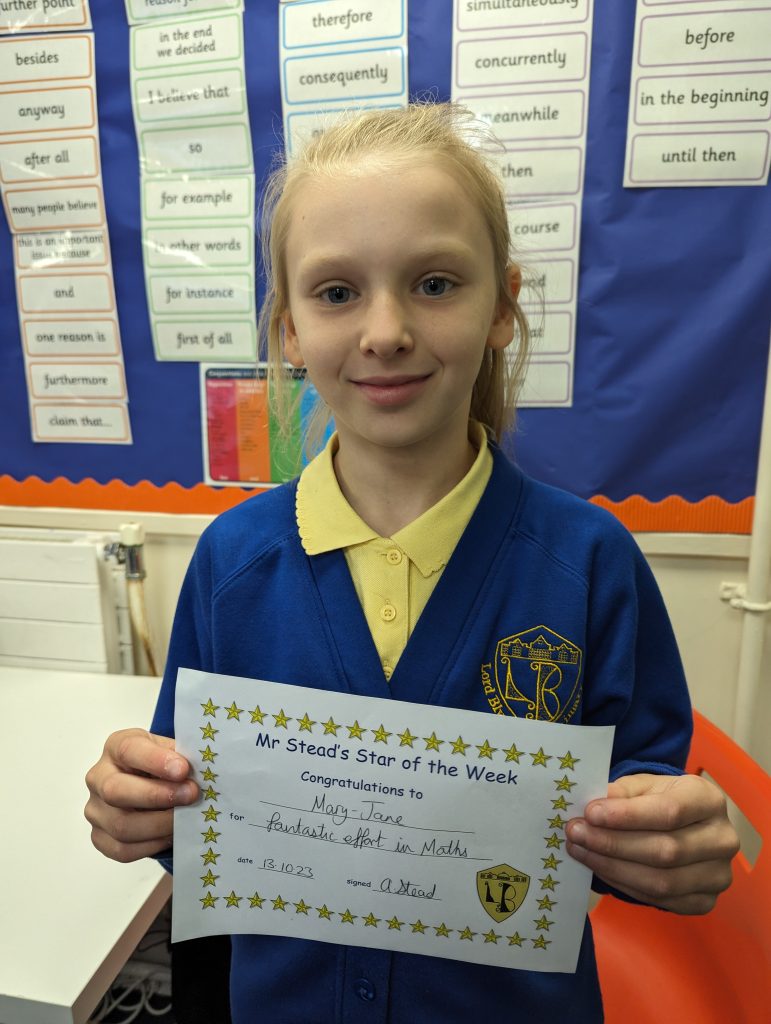 further point
besides
anyway
after all
many people believe
this is an important
issue because
and
one reason is
furthermore
claim that...
in the end
we decided
I believe that
so
for example
in other words
for instance
first of all
therefore
consequently
simultaneously
concurrently
meanwhile
then
course
before
in the beginning
until then
Lord
Mr Stead's Star of the Week
Congratulations to
Mary-Jane
for fantastic effort in Maths
date 13.10.23 signed A Stead
LB